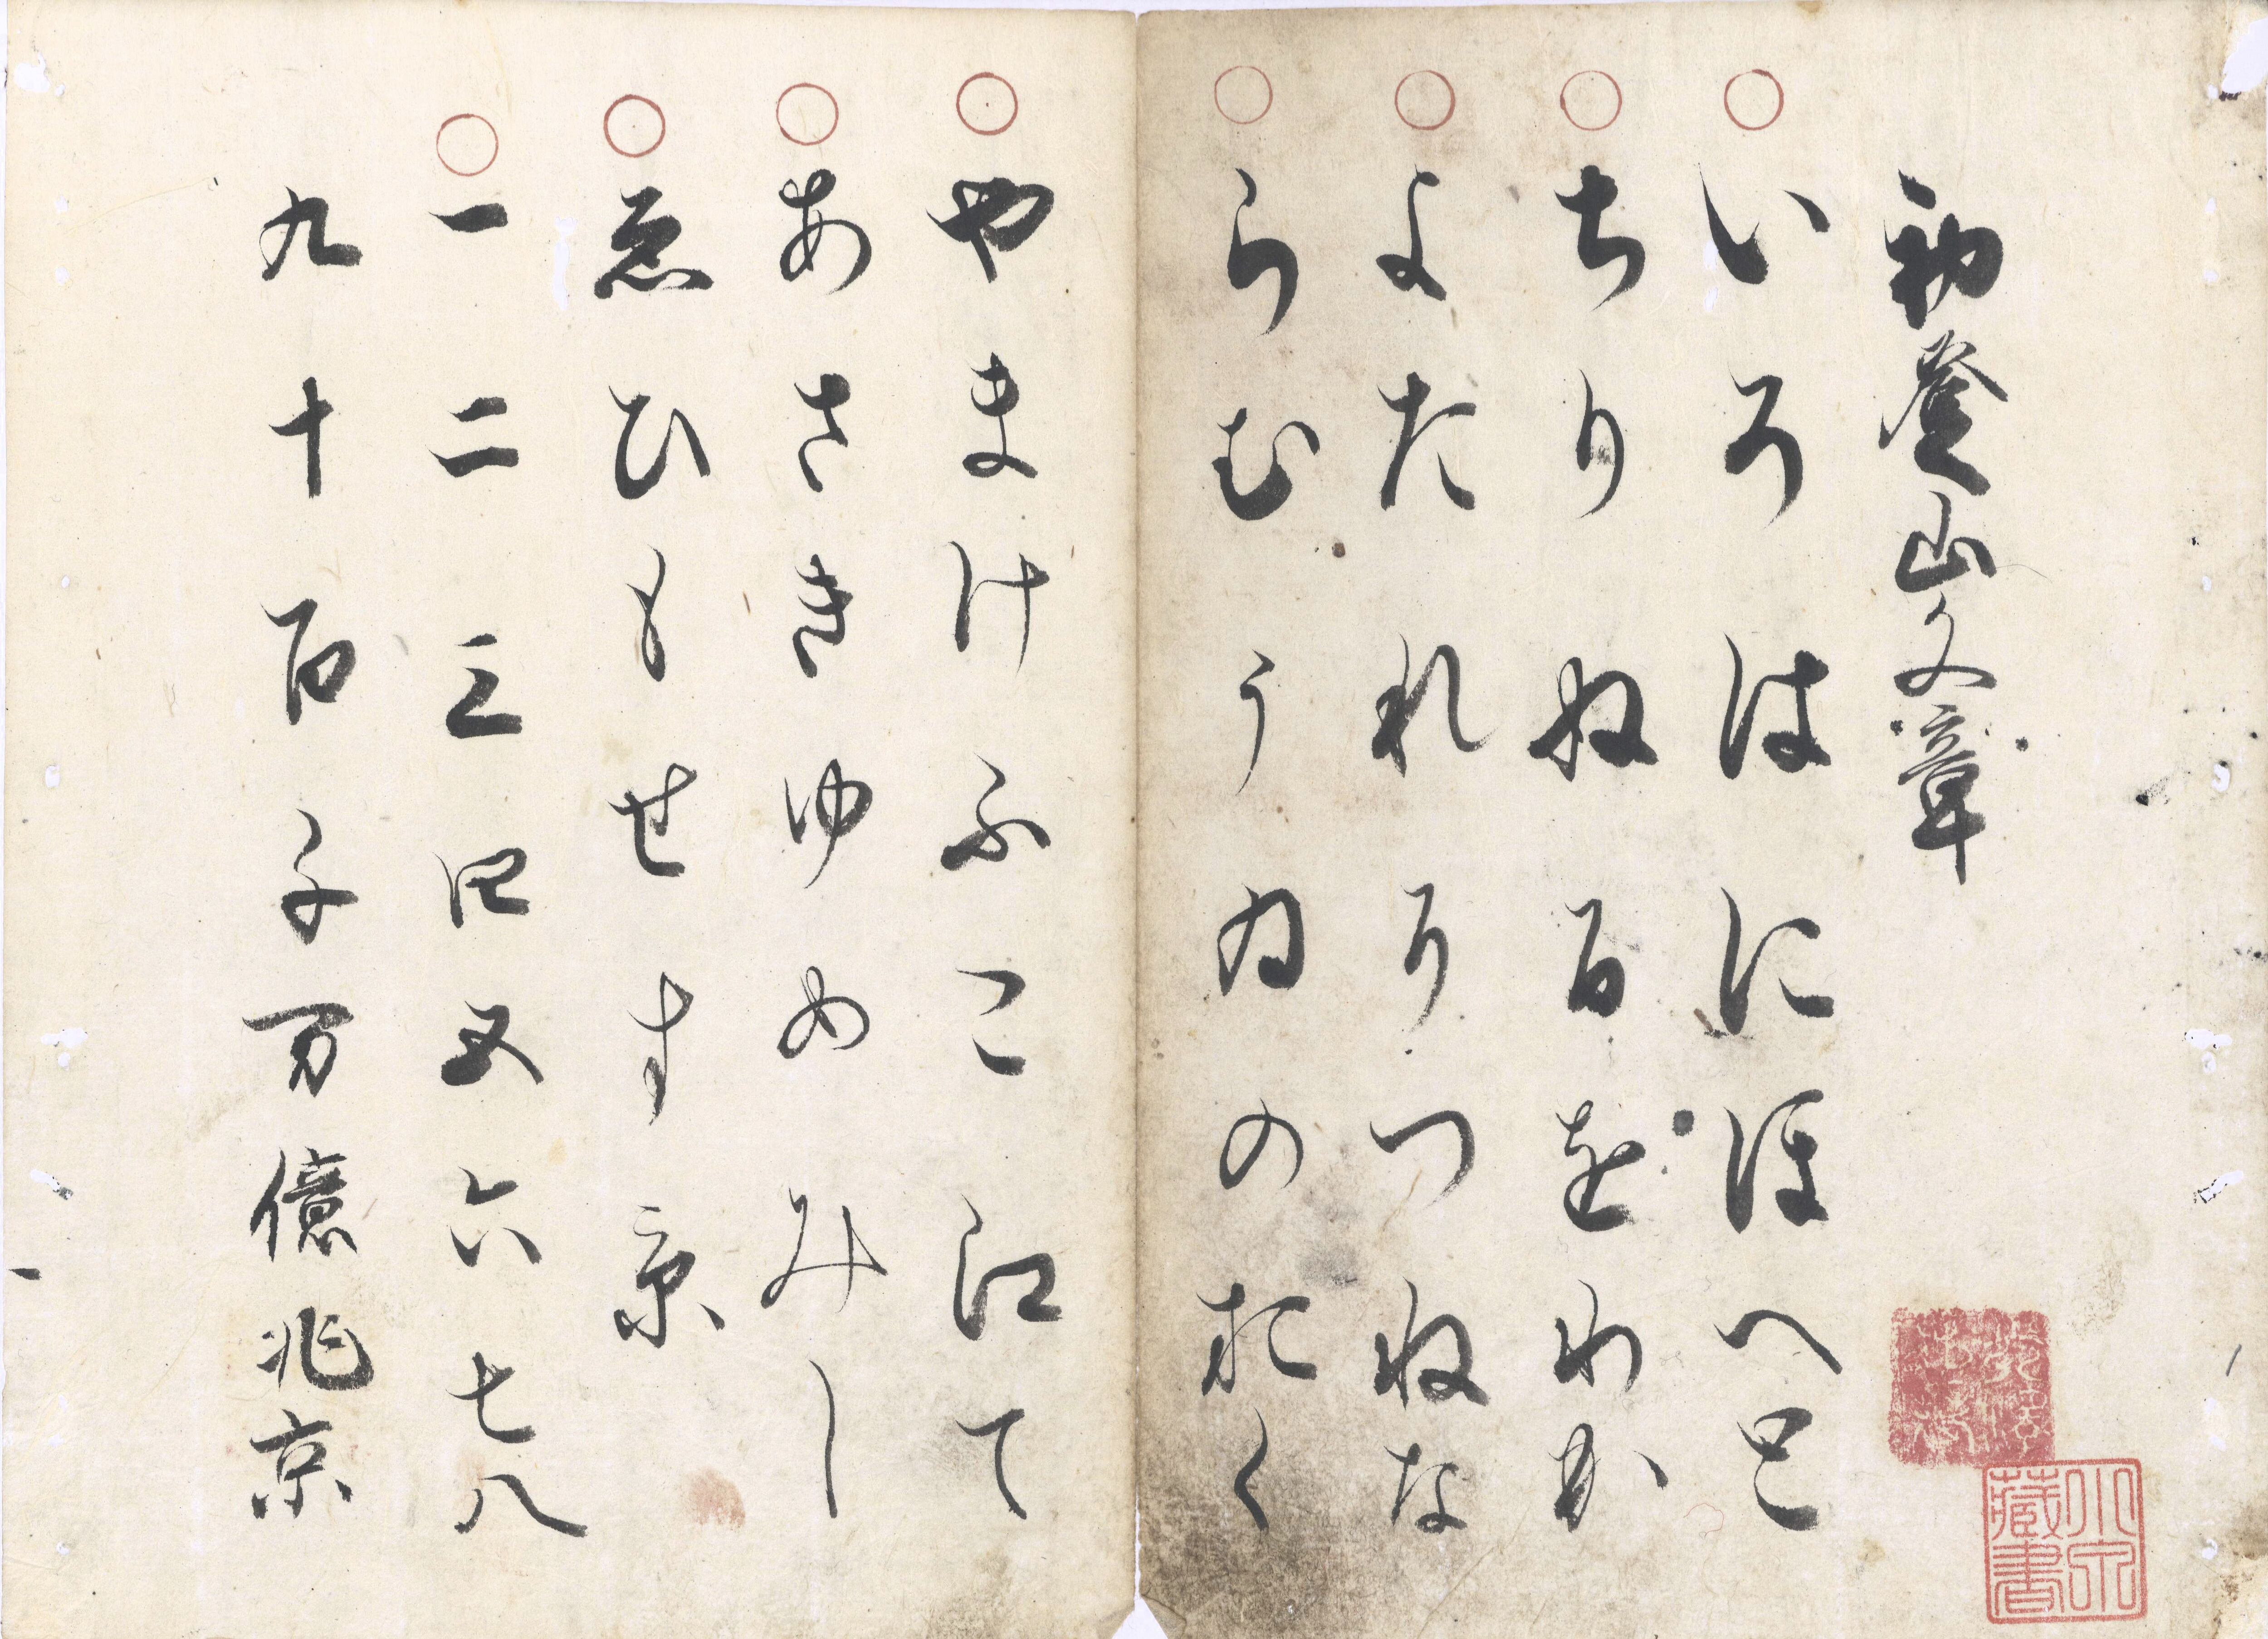 初登山文章
いろはにほへと
ちりぬるをわか
よたれそつねな
らむうゐのおく
やまけふこ江て
あさきゆめみし
ゑひもせす京
一二三四五六七八
九十百千万億兆京
藏書